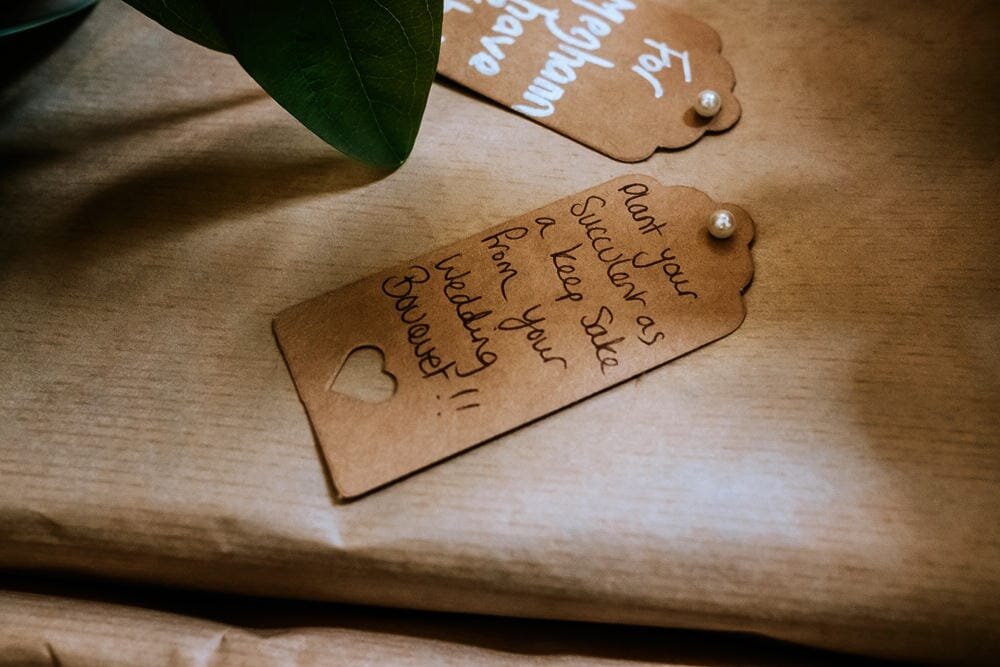 For
Meghann
have
Plant your
Succulent as
a keep sake
from your
Wedding
Bouquet!!